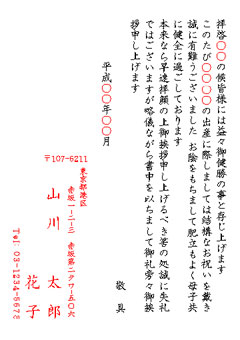 拝啓〇〇の候皆様には益々御健勝の事と存じ上げます
このたび〇〇〇〇の出産に際しましては結構なお祝いを戴き
誠に有難うございました お陰をもちまして肥立もよく母子共
に健全に過ごしております
本来なら早速拝顔の上御挨拶申し上げるべき筈の処誠に失礼
ではございますが略儀ながら書中を以ちまして御礼旁々御挨
拶申し上げます
敬具
平成〇〇年〇〇月
〒107-6211
東京都港区
赤坂一ー二ー三 赤坂第二タワー五〇六
山川 太郎
花子
Tel 03-1234-5678